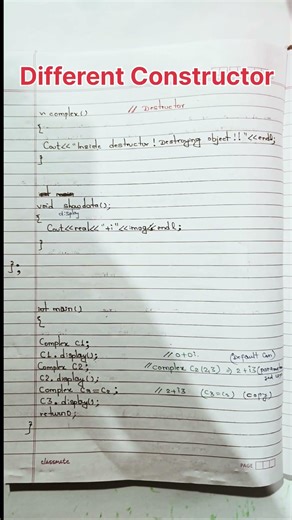 Different Constructor
~ complex() // Destructor
{
Cout<<"Inside destructor! Destroying object!!"<<endl;
}
void showdata();
display
{
Cout<<real<<"+i"<<imag<<endl;
}
};
int main()
{
Complex C1;
C1.display(); // 0+0i. (Default Con)
Complex C2; // complex C2(2,3) => 2+i3
C2.display();
Complex C3=C2; // 2+i3 (C3=C2) (copy)
C3.display();
return 0;
}
classmate
PAGE